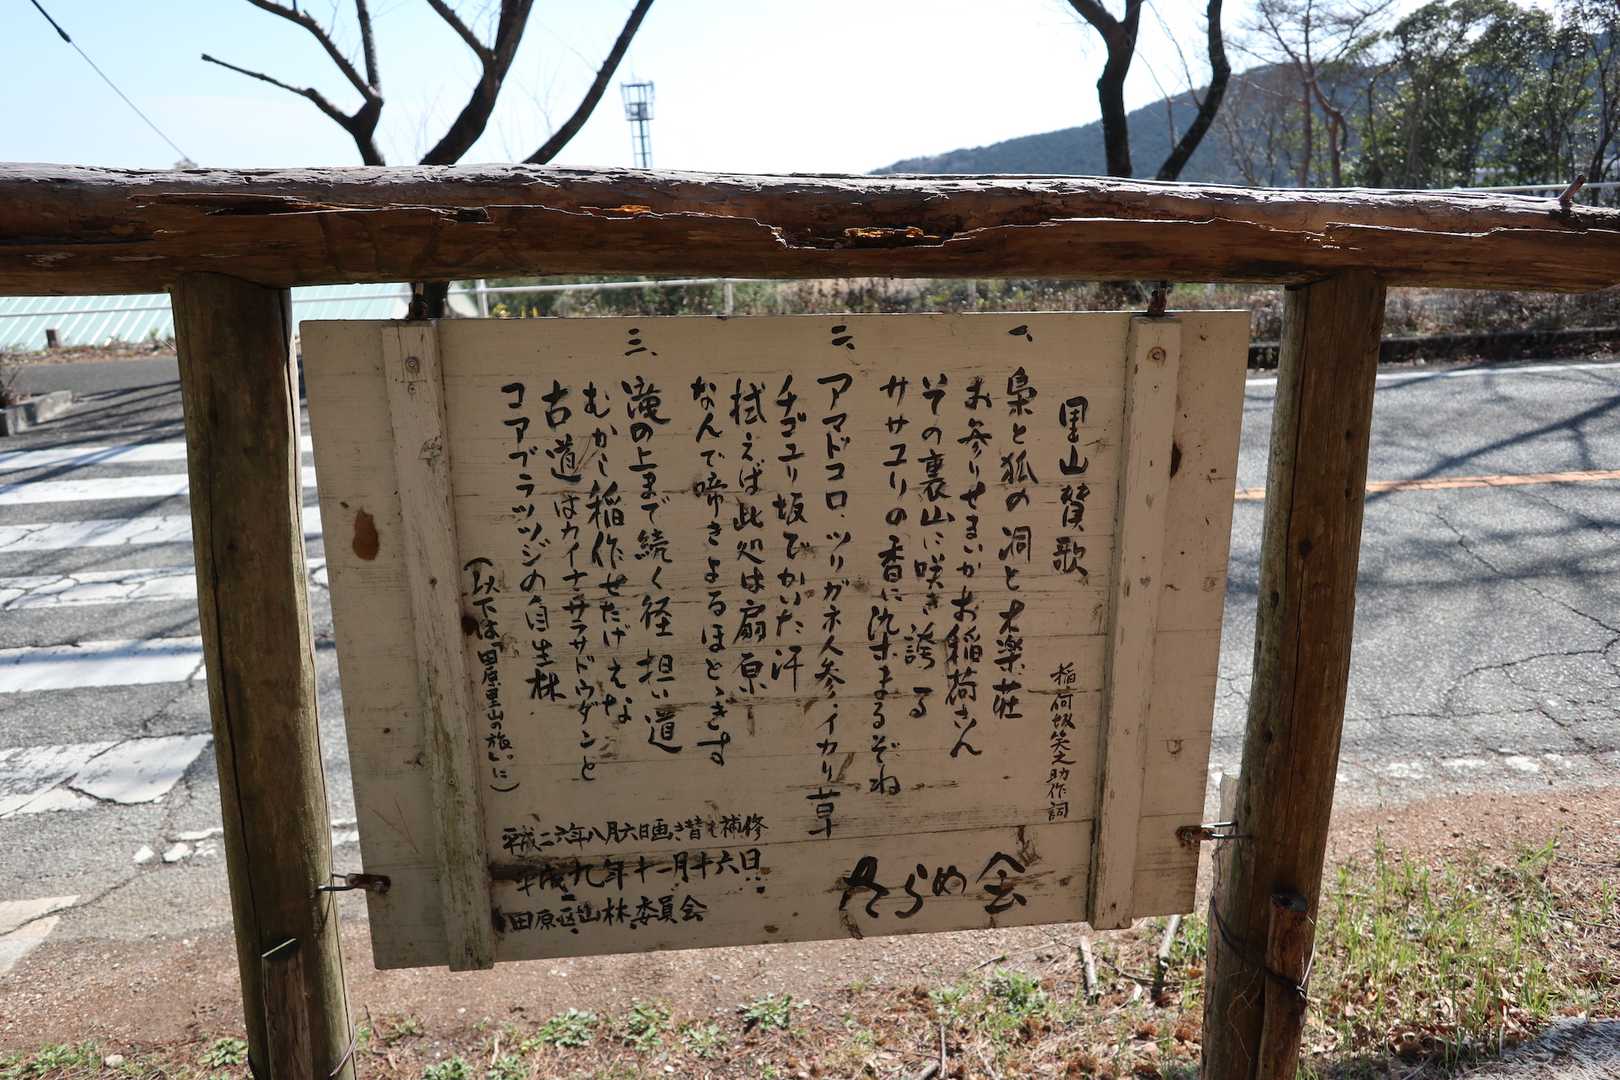 里山賛歌
稲荷坂笑之助作詞
一、
梟と狐の洞と大楽荘
お参りせまいかお稲荷さん
その裏山に咲き誇る
ササユリの香に染まるぞね
二、
アマドコロ、ツリガネ人参、イカリ草
チゴユリ坂でかいた汗
拭えば此処は扇原
なんで啼きよるほとゝぎす
三、
滝の上まで続く径 担い道
むかし稲作せたげえな
古道はカイナサラサドウダンと
コアブラツツジの自生林
（以下は「田原里山の旅」に）
きらめ会
平成二六年八月六日画き替え補修
平成九年十一月十六日
田原区山林委員会